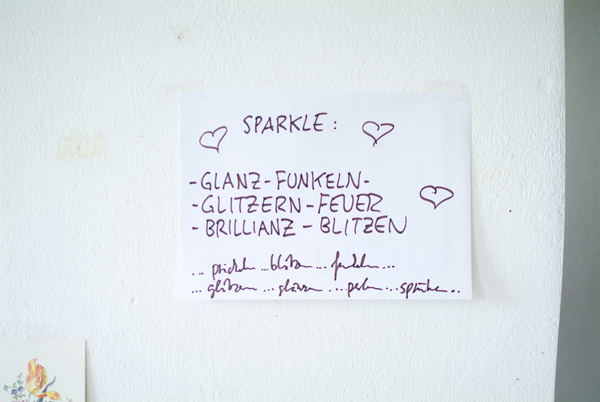 SPARKLE:
-GLANZ-FUNKELN-
-GLITZERN-FEUER
-BRILLIANZ-BLITZEN
... prickeln ... blitzen ... funkeln ...
... glitzern ... glänzen ... perlen ... sprühen ..